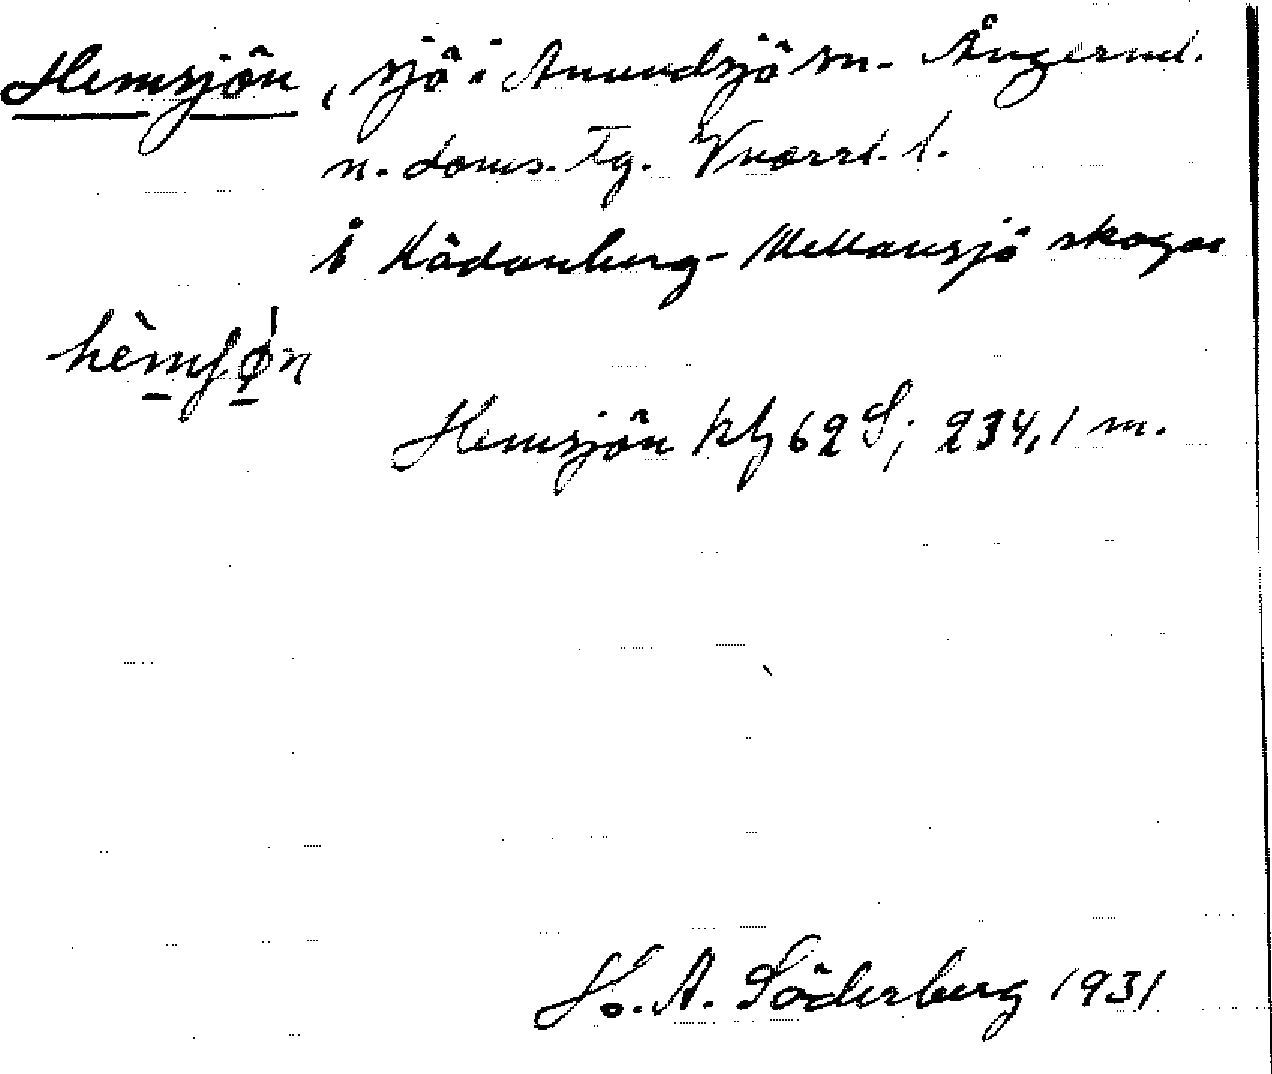 Hemsjön, sjö i Anundsjö sn. Ångerml.
n. doms. tg. Vnorrl. l.
å Kådanberg-Mellansjö skogar
hèmʃø̀n
Hemsjön kbl 62 S; 234,1 m.
H. A. Söderberg 1931